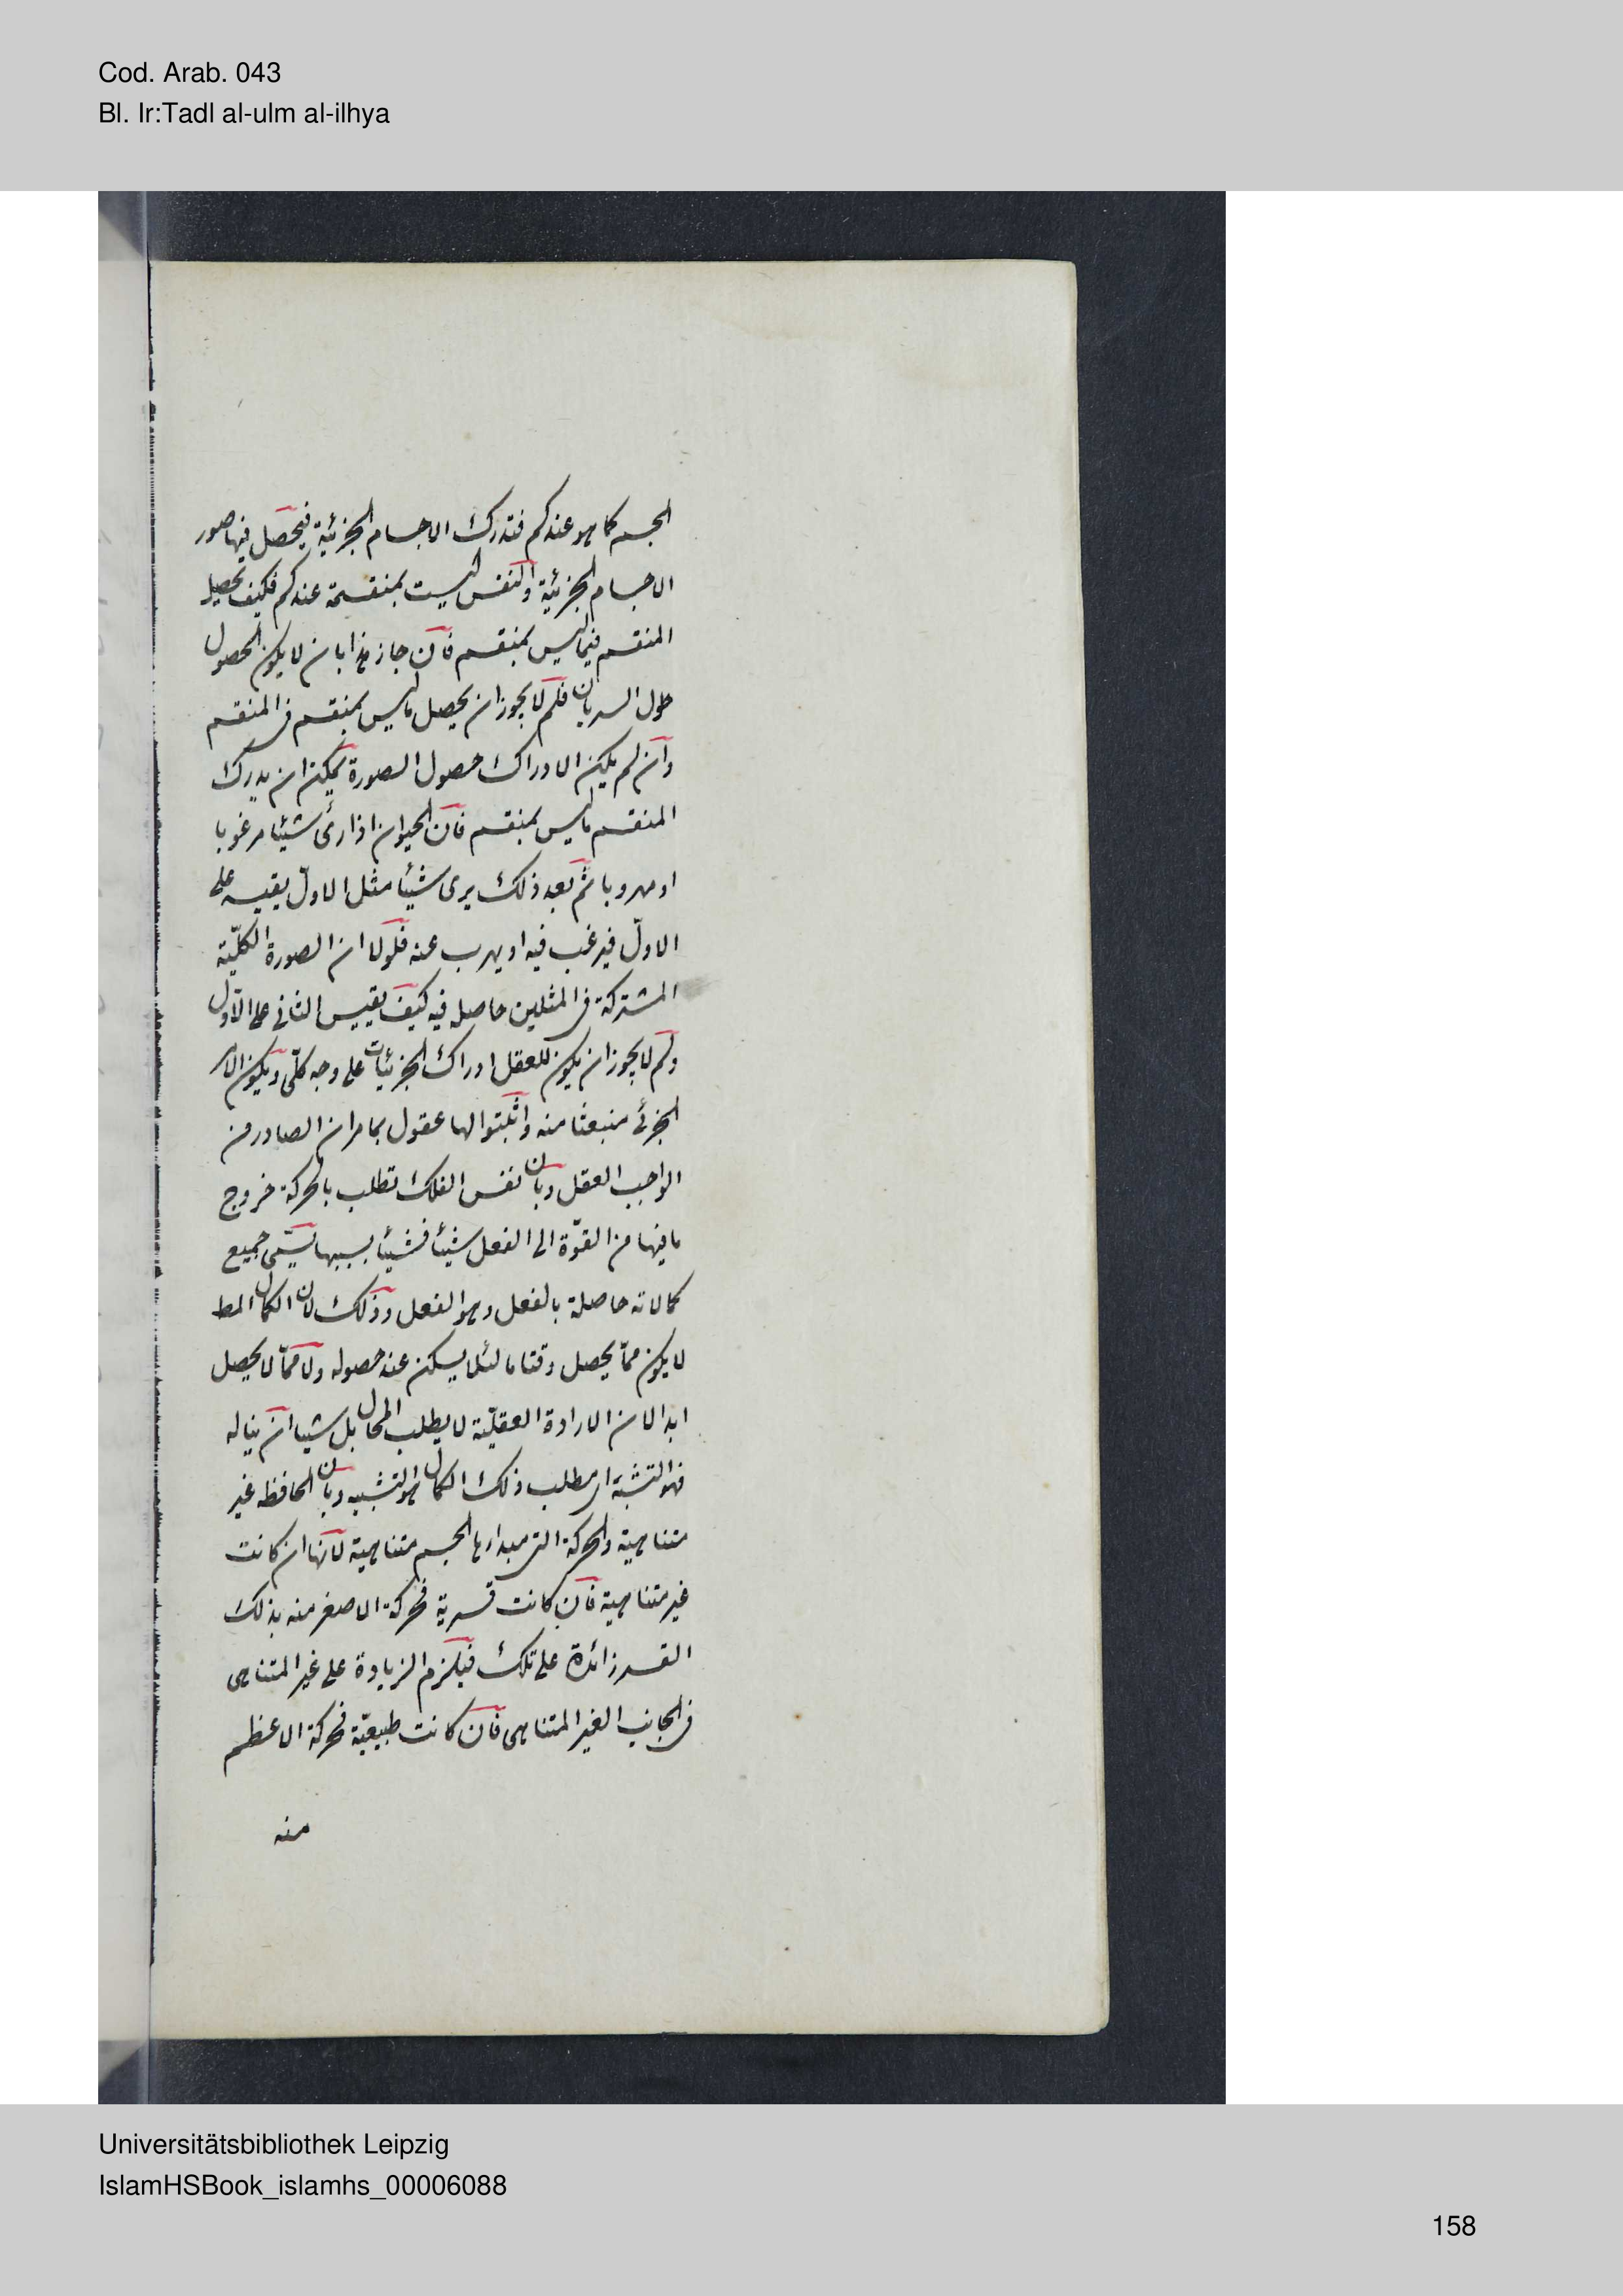 Cod. Arab. 043
Bl. Ir:Tadl al-ulm al-ilhya
الجسم كما هو عندكم فتدرك الاجسام الجزئية فيحصل فيها صور
الاجسام الجزئية والنفس ليست بمنقسمة عندكم فكيف يحصل
المنقسم فيما ليس بمنقسم فان جاز هذا بان لا يكون الحصول
حلول السريان فلم لا يجوز ان يحصل ما ليس بمنقسم فى المنقسم
وان لم يكن الادراك حصول الصورة يمكن ان يدرك
المنقسم ما ليس بمنقسم فان الحيوان اذا رئ شيئا مرغوبا
او مهروبا ثم بعد ذلك يرى شيئا مثل الاول يقيسه على
الاول فيرغب فيه او يهرب عنه فلولا ان الصورة الكليّة
المشتركة فى المثلين حاصله فيه كيف يقيس الثانى على الاول
ولم لا يجوز ان يكون للعقل ادراك الجزئيات على وجه كلّى ويكون الامر
الجزئى منبعثا منه واثبتوا لها عقول بما مر ان الصادر من
الواجب العقل وبان نفس الفلك تطلب بالحركة خروج
ما فيها من القوّة الى الفعل شيئا فشيئا بسببها جميع
كمالاته حاصلة بالفعل وهو الفعل وذلك لان الكمال المط
لا يكون ممّا يحصل وقتا ما لئلا يسكن عند حصوله ولا ممّا لا يحصل
ابدا لان الارادة العقليّة لا يطلب المحال بل شيا ان يناله
فهو التشبّه اى مطلب ذلك الكمال هو التشبيه وبان الحافظه غير
متناهية والحركة التى مبداءها الجسم متناهية لانها ان كانت
غير متناهية فان كانت قسرية فحركة الاصغر منه بذلك
القسر زائدة على تلك فيلزم الزيادة على غير المتناهى
فى الجانب الغير المتناهى فان كانت طبيعيّة فحركة الاعظم
منه
Universitätsbibliothek Leipzig
IslamHSBook_islamhs_00006088
158